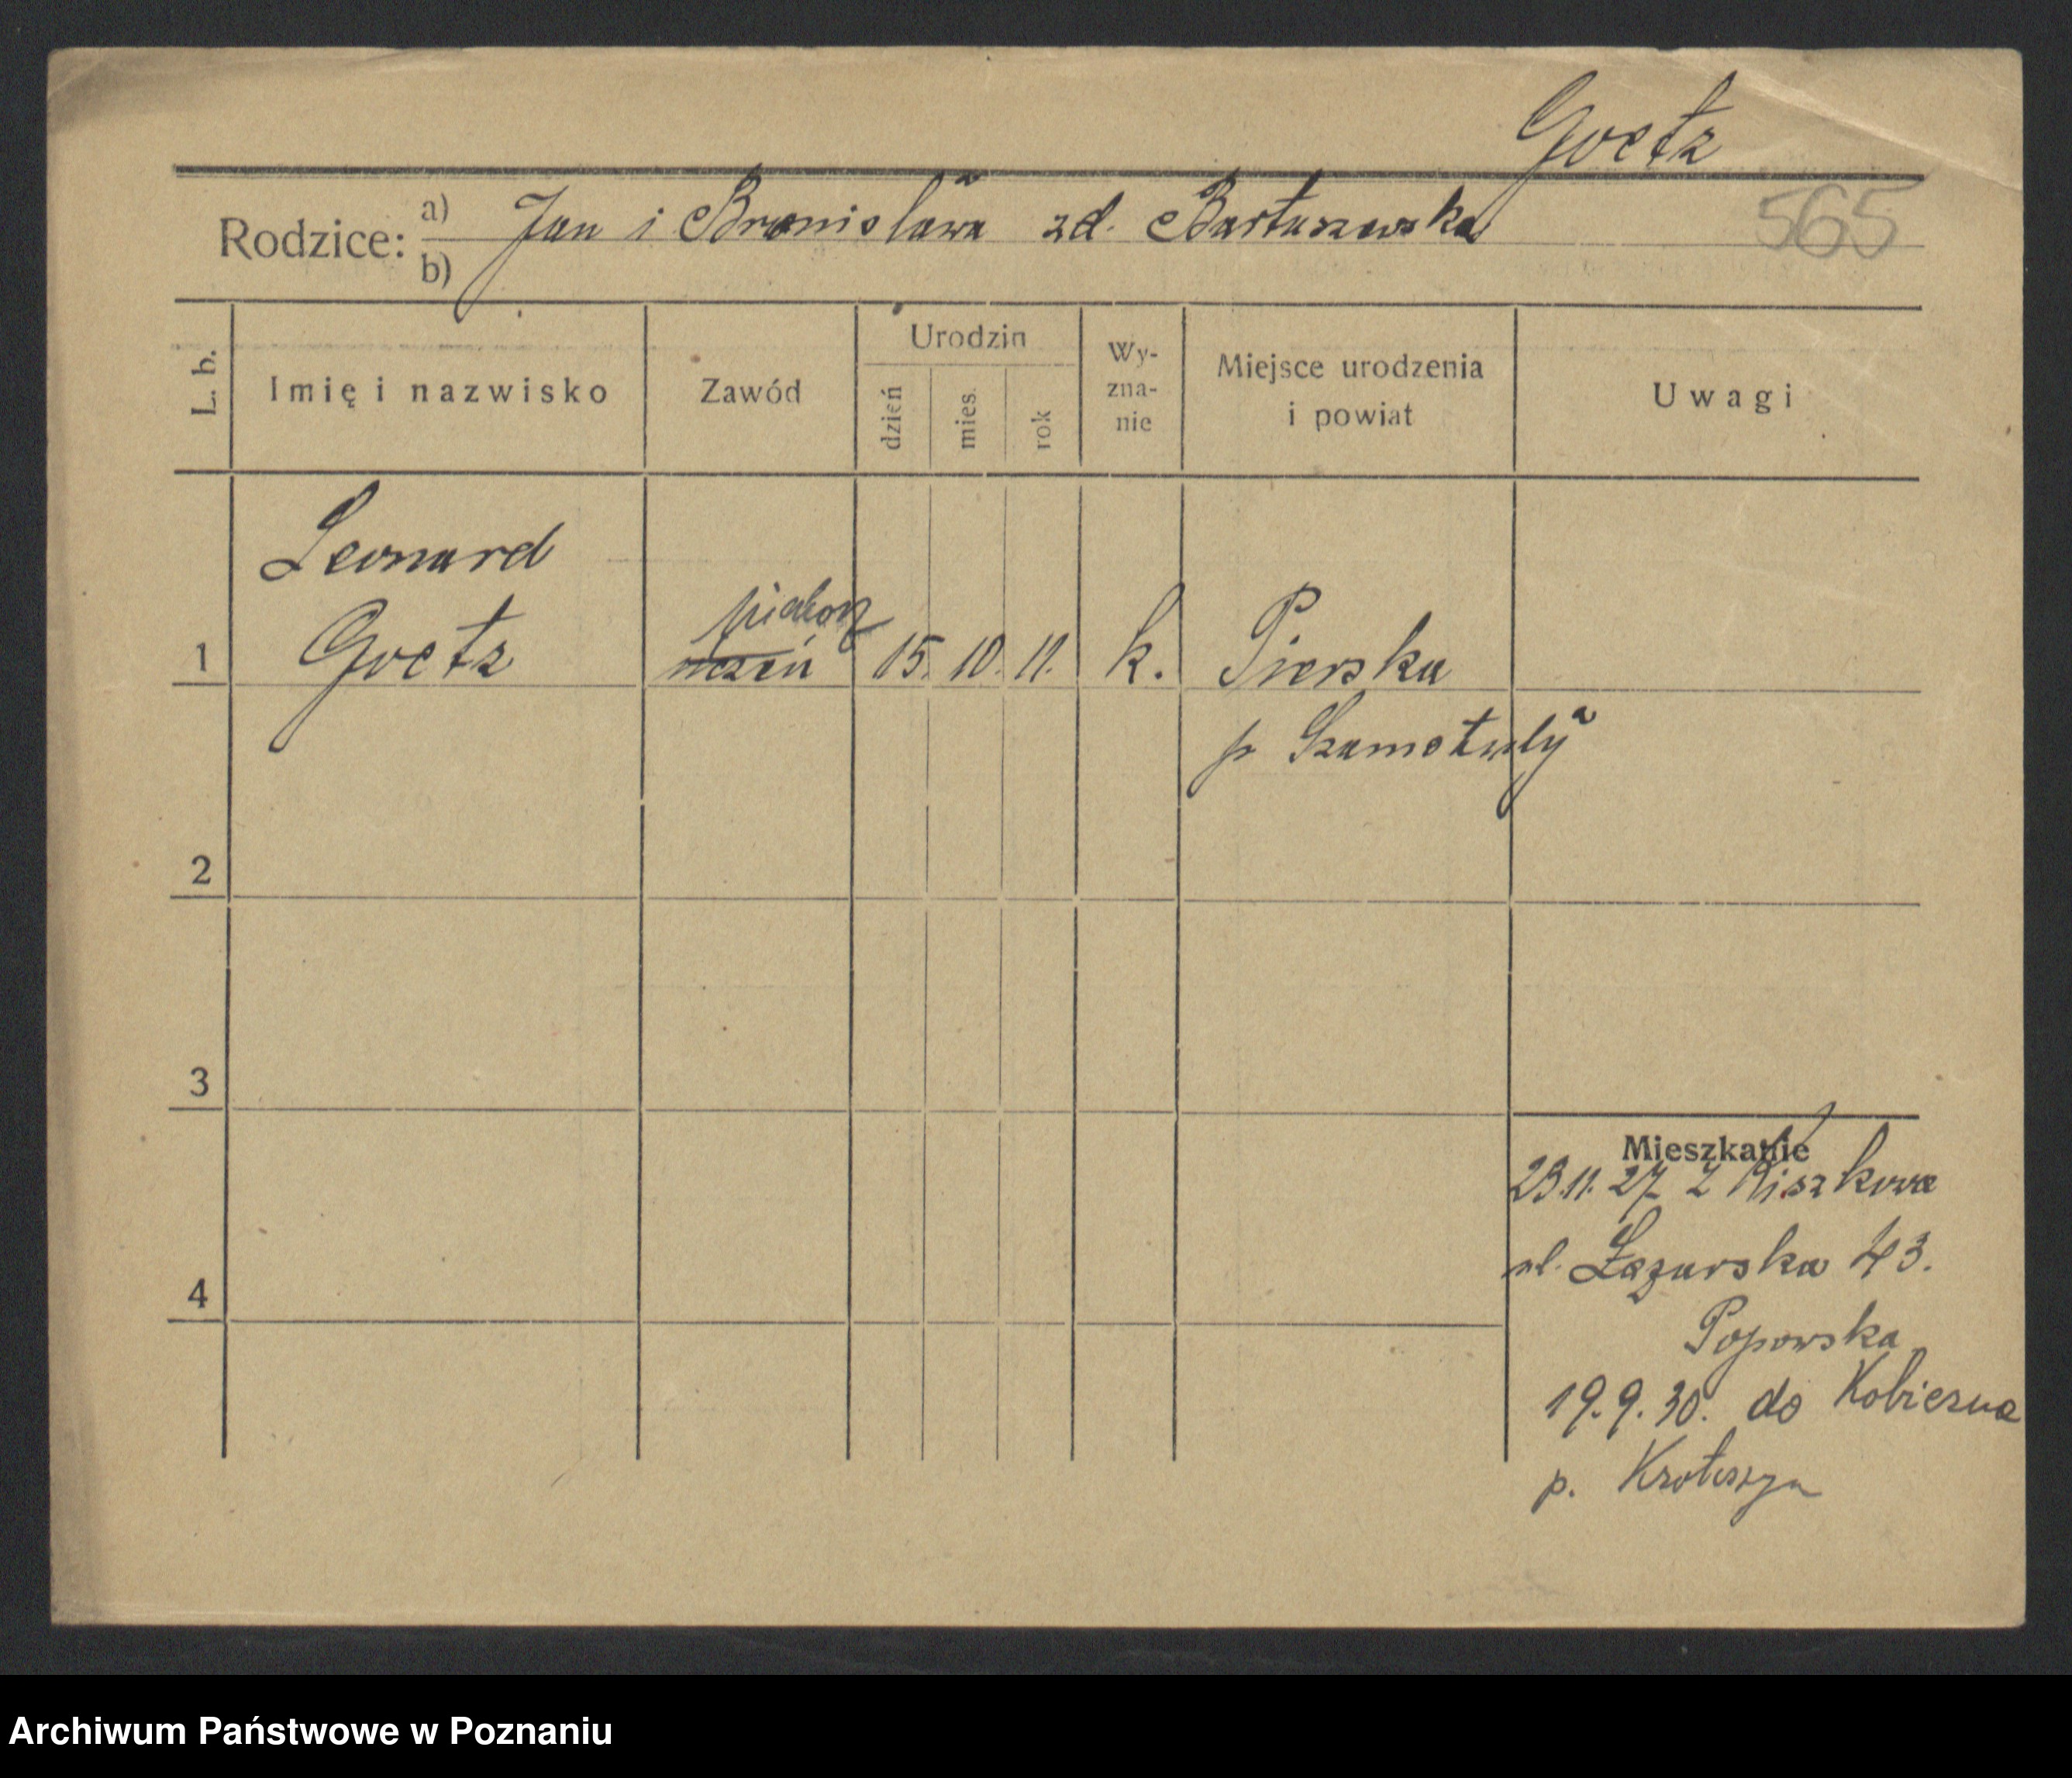 Goetz
565
Rodzice: a) Jan i Bronisława zd. Bartuszewska
b)
L. b. Imię i nazwisko Zawód Urodzin dzień mies. rok Wy-zna-nie Miejsce urodzenia i powiat Uwagi
Leonard
piekarz
1 Goetz uczeń 15. 10. 11. k. Pierska
p Szamotuły
2
3
Mieszkanie
23.11.27 z Kiszkowa
4 ul. Łazarska 43.
Popowska
19.9.30. do Kobierna
p. Krotoszyn
Archiwum Państwowe w Poznaniu